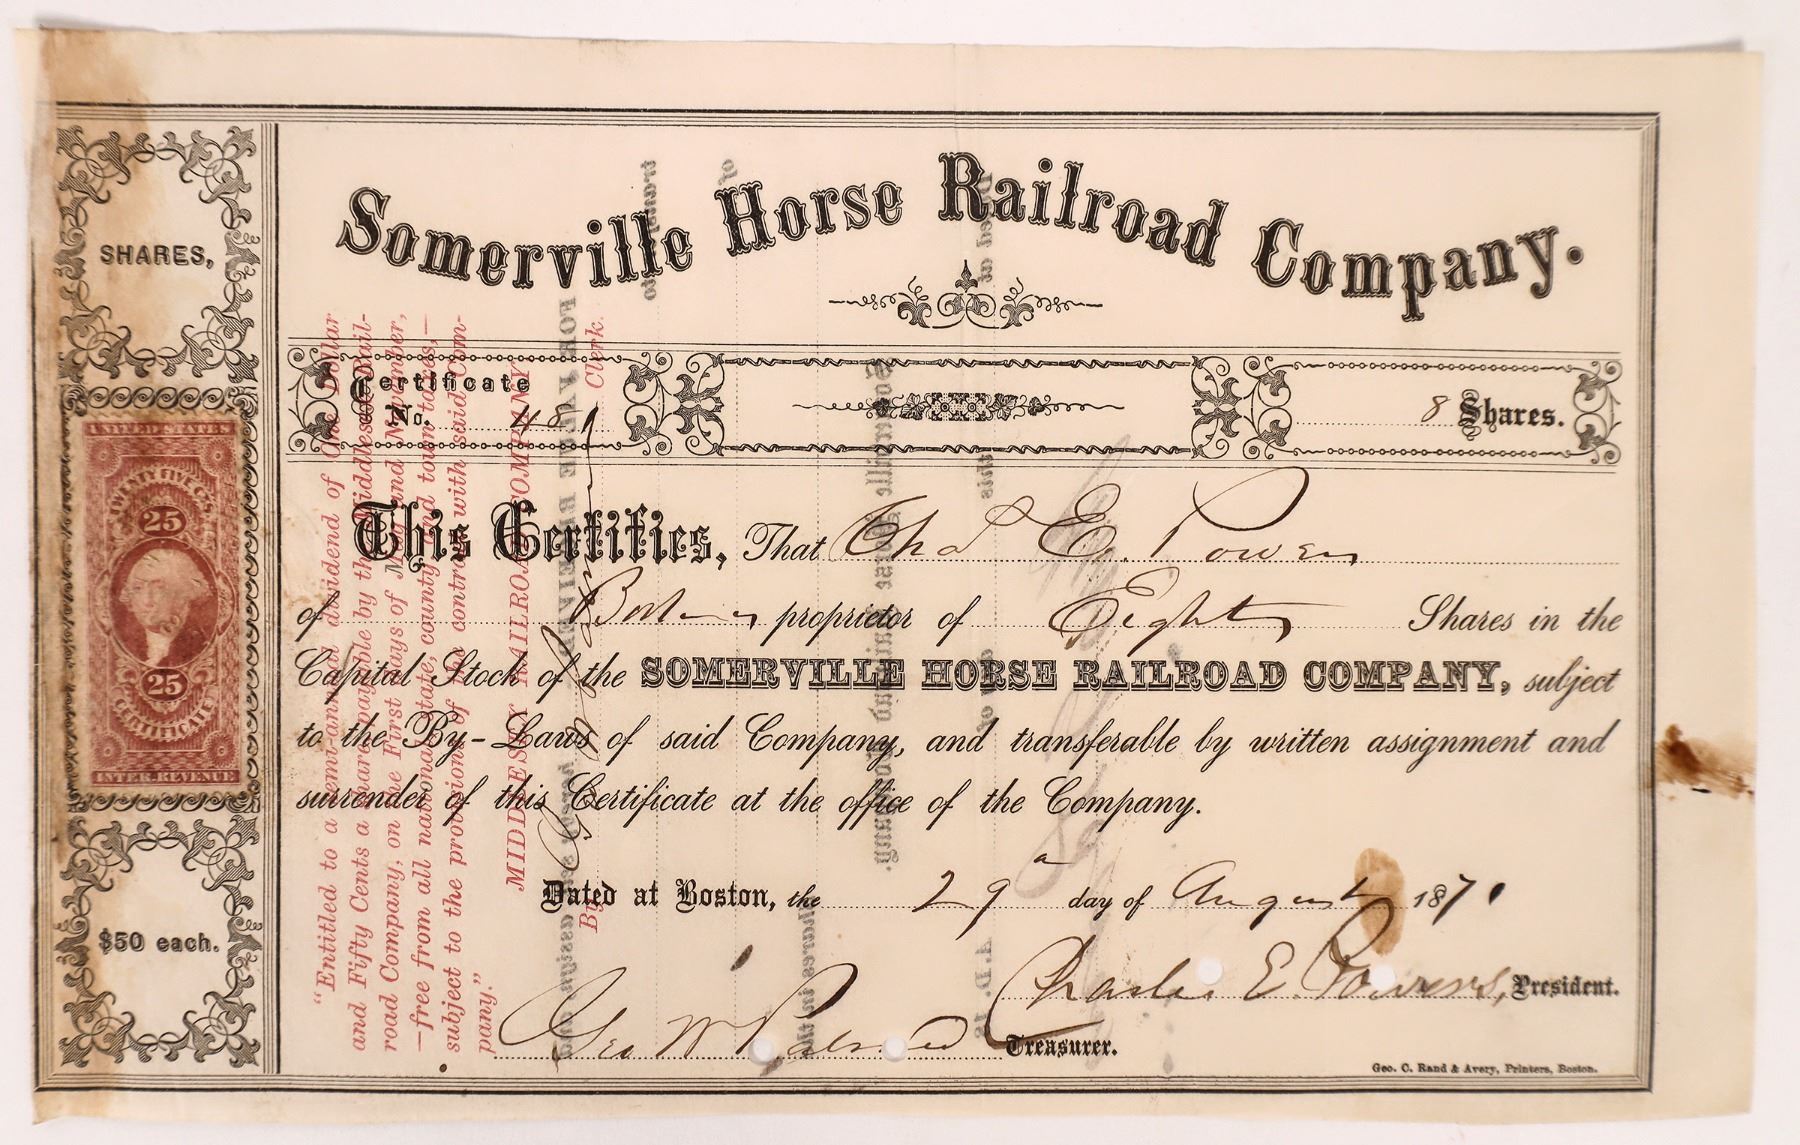 Somerville Horse Railroad Company.
SHARES,
Certificate
No. 481
8 Shares.
UNITED STATES
TWENTY FIVE CTS
25
25
CERTIFICATE
INTER. REVENUE
$50 each.
This Certifies, That Chas E. Powers
of Boston proprietor of Eight Shares in the
Capital Stock of the SOMERVILLE HORSE RAILROAD COMPANY, subject
to the By-Laws of said Company, and transferable by written assignment and
surrender of this Certificate at the office of the Company.
Dated at Boston, the 29 day of August 1871
Charles E. Powers, President.
Geo W Treasurer.
Geo. C. Rand & Avery, Printers, Boston.
"Entitled to a semi-annual dividend of One Dollar
and Fifty Cents a share, payable by the Middlesex Rail-
road Company, on the First days of May and November,
—free from all national, state, county and town taxes,—
subject to the provisions of the contract with said Com-
pany."
MIDDLESEX RAILROAD COMPANY
By Clerk.
FOR VALUE RECEIVED, hereby assign and
transfer to
of
Shares in the
Somerville Horse Railroad Company.
Dated at this day of A.D. 18